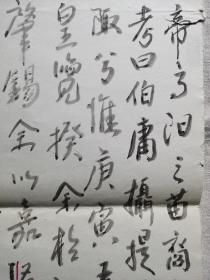 帝高阳之苗裔
考曰伯庸攝提
陬兮惟庚寅吾
皇覽揆余於
肇錫余以嘉